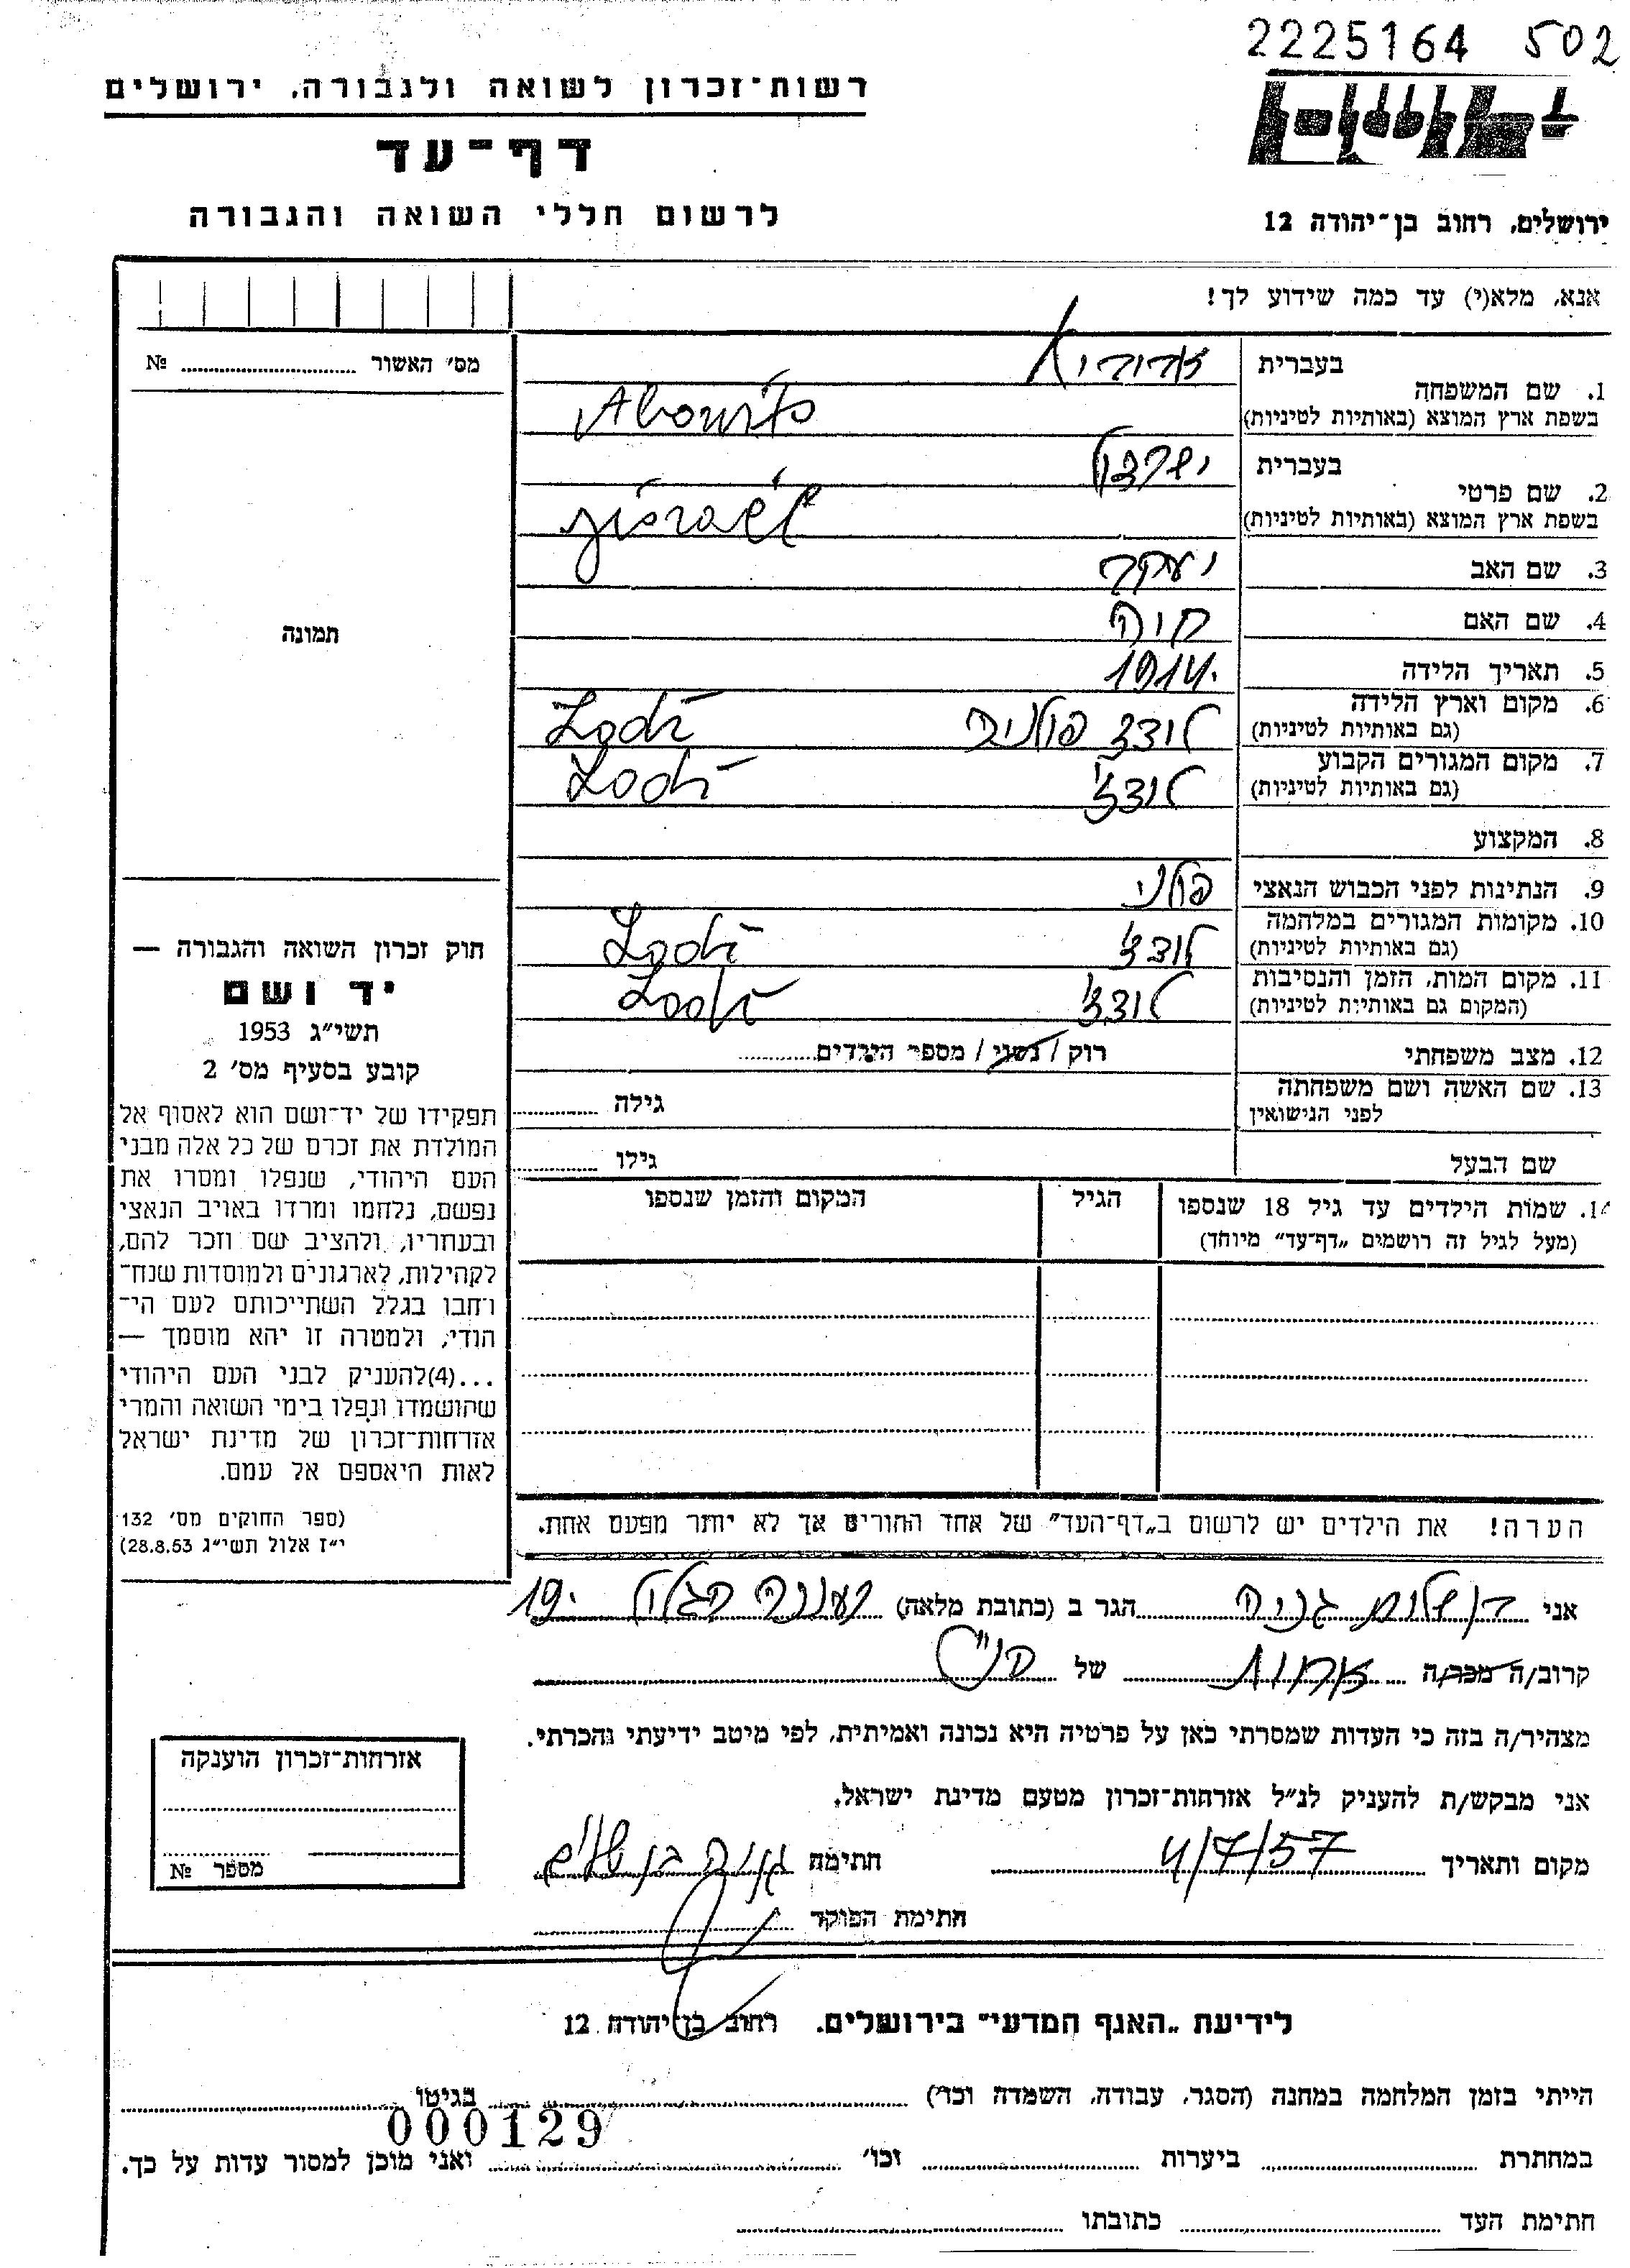 2225164 502
רשות־זכרון לשואה ולגבורה, ירושלים
דף־עד
לרשום חללי השואה והגבורה
ירושלים, רחוב בן־יהודה 12
אנא, מלא(י) עד כמה שידוע לך!
בעברית
1. שם המשפחה
בשפת ארץ המוצא (באותיות לטיניות)
בעברית ישראל
2. שם פרטי
בשפת ארץ המוצא (באותיות לטיניות)
3. שם האב יעקב
4. שם האם חיה
5. תאריך הלידה 1914.
6. מקום וארץ הלידה לודז פולניה Lodź
(גם באותיות לטיניות)
7. מקום המגורים הקבוע לודז' Lodź
(גם באותיות לטיניות)
8. המקצוע
9. הנתינות לפני הכבוש הנאצי פולני
10. מקומות המגורים במלחמה לודז' Lodź
(גם באותיות לטיניות)
11. מקום המות, הזמן והנסיבות לודז' Lodź
(המקום גם באותיות לטיניות)
12. מצב משפחתי רוק / נשוי / מספר הילדים
13. שם האשה ושם משפחתה
לפני הנישואין גילה
שם הבעל גילו
14. שמות הילדים עד גיל 18 שנספו הגיל המקום והזמן שנספו
(מעל לגיל זה רושמים „דף־עד” מיוחד)
הערה! את הילדים יש לרשום ב„דף־העד” של אחד ההורים אך לא יותר מפעם אחת.
מס׳ האשור №
תמונה
חוק זכרון השואה והגבורה —
יד ושם
תשי״ג 1953
קובע בסעיף מס׳ 2
תפקידו של יד־ושם הוא לאסוף אל
המולדת את זכרם של כל אלה מבני
העם היהודי, שנפלו ומסרו את
נפשם, נלחמו ומרדו באויב הנאצי
ובעוזריו, ולהציב שם וזכר להם,
לקהילות, לארגונים ולמוסדות שנח־
רבו בגלל השתייכותם לעם הי־
הודי, ולמטרה זו יהא מוסמך —
...(4)להעניק לבני העם היהודי
שהושמדו ונפלו בימי השואה והמרי
אזרחות־זכרון של מדינת ישראל
לאות היאספם אל עמם.
(ספר החוקים מס׳ 132
י״ז אלול תשי״ג 28.8.53)
אני בן שלום גניה הגר ב (כתובת מלאה) רעננה 19.
קרוב/ה מכר/ה אחות של הנ"ל
מצהיר/ה בזה כי העדות שמסרתי כאן על פרטיה היא נכונה ואמיתית, לפי מיטב ידיעתי והכרתי.
אני מבקש/ת להעניק לנ״ל אזרחות־זכרון מטעם מדינת ישראל.
מקום ותאריך 4/7/57 חתימה גניה בן שלום
חתימת הפוקד
אזרחות־זכרון הוענקה
מספר №
לידיעת „האגף המדעי” בירושלים. רחוב בן־יהודה 12
הייתי בזמן המלחמה במחנה (הסגר, עבודה, השמדה וכד׳) בגיטו
במחתרת ביערות וכו׳ ואני מוכן למסור עדות על כך.
000129
חתימת העד כתובתו